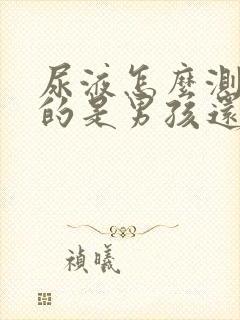 尿液怎麼測
的是男孩還
禎曦